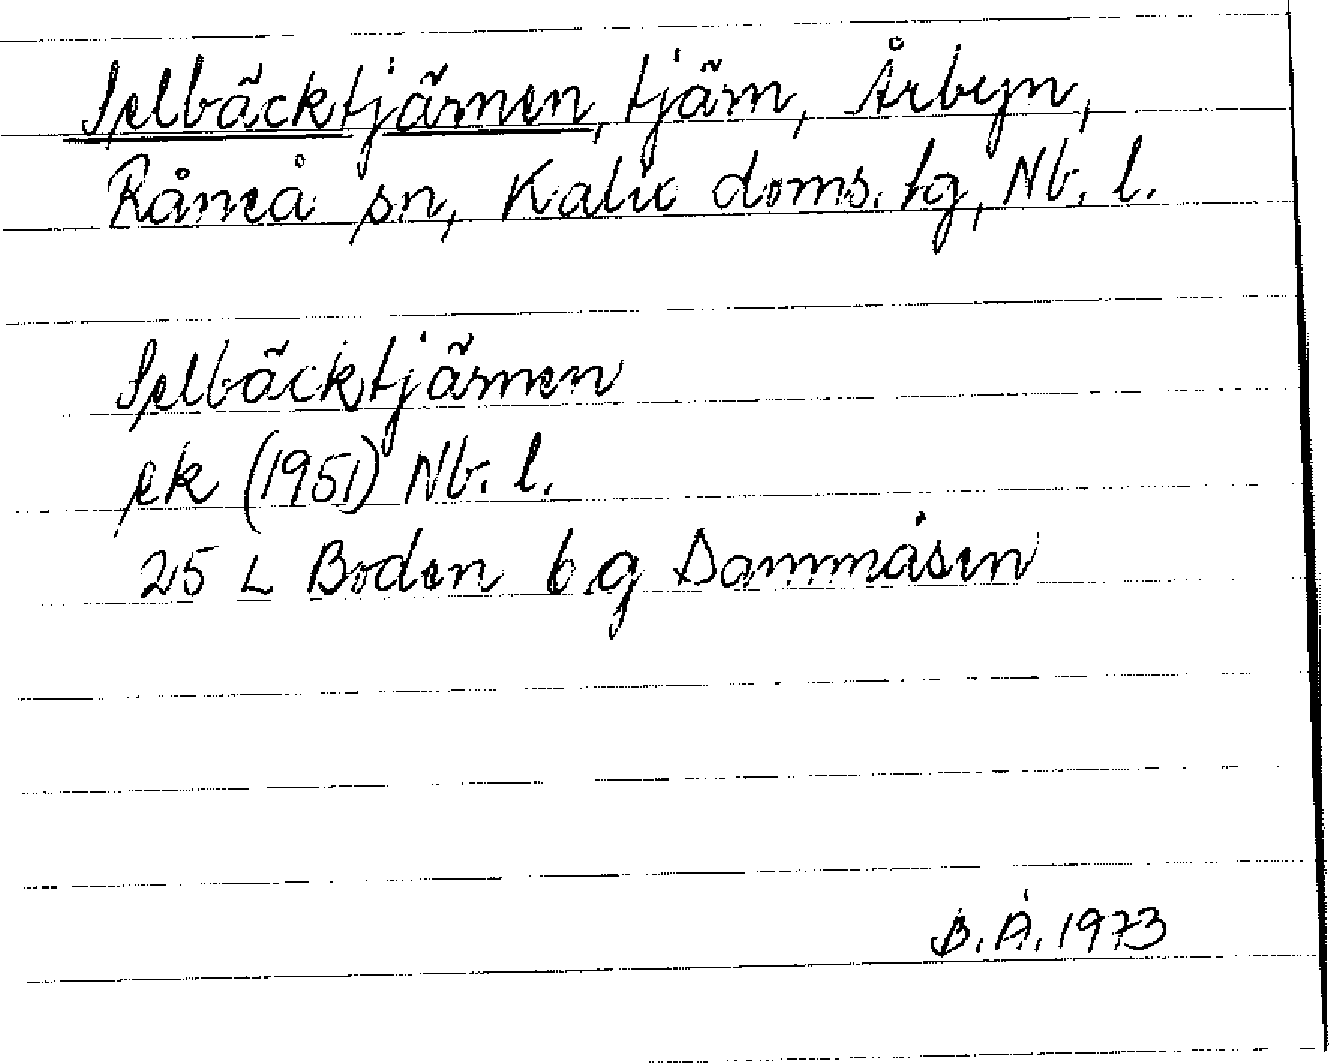 Selbäcktjärnen, tjärn, Årbyn,
Råneå sn, Kalix doms. tg, Nb. l.
Selbäcktjärnen
ek (1951) Nb. l.
25 L Boden 6 g Dammåsen
B. Å. 1973